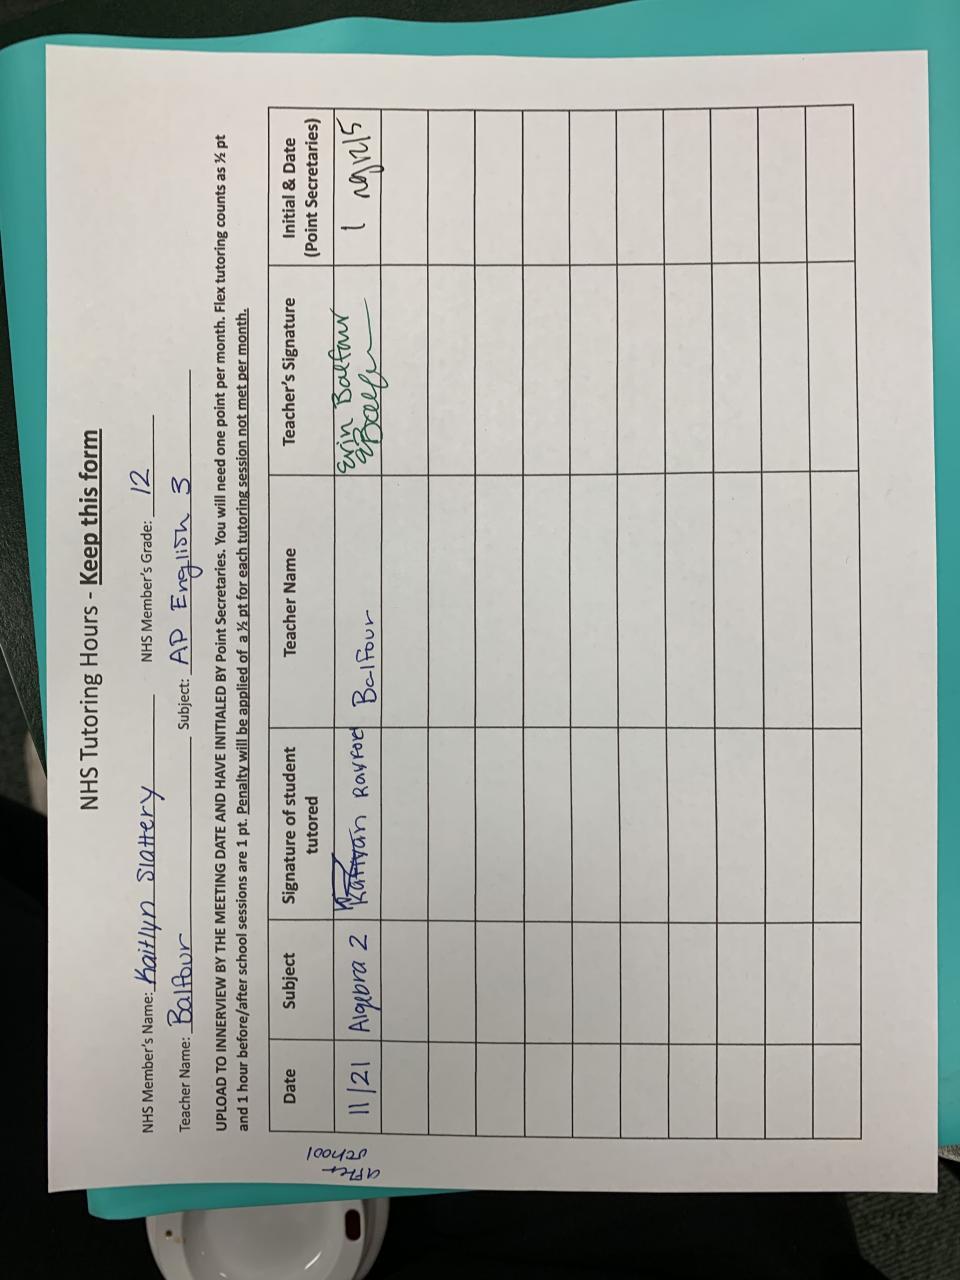 NHS Tutoring Hours - Keep this form
NHS Member's Name: Kaitlyn Slattery NHS Member's Grade: 12
Teacher Name: Balfour Subject: AP English 3
UPLOAD TO INNERVIEW BY THE MEETING DATE AND HAVE INITIALED BY Point Secretaries. You will need one point per month. Flex tutoring counts as ½ pt
and 1 hour before/after school sessions are 1 pt. Penalty will be applied of a ½ pt for each tutoring session not met per month.
Date Subject Signature of student tutored Teacher Name Teacher's Signature Initial & Date (Point Secretaries)
after school
11/21 Algebra 2 Balfour Erin Balfour 1 12/5